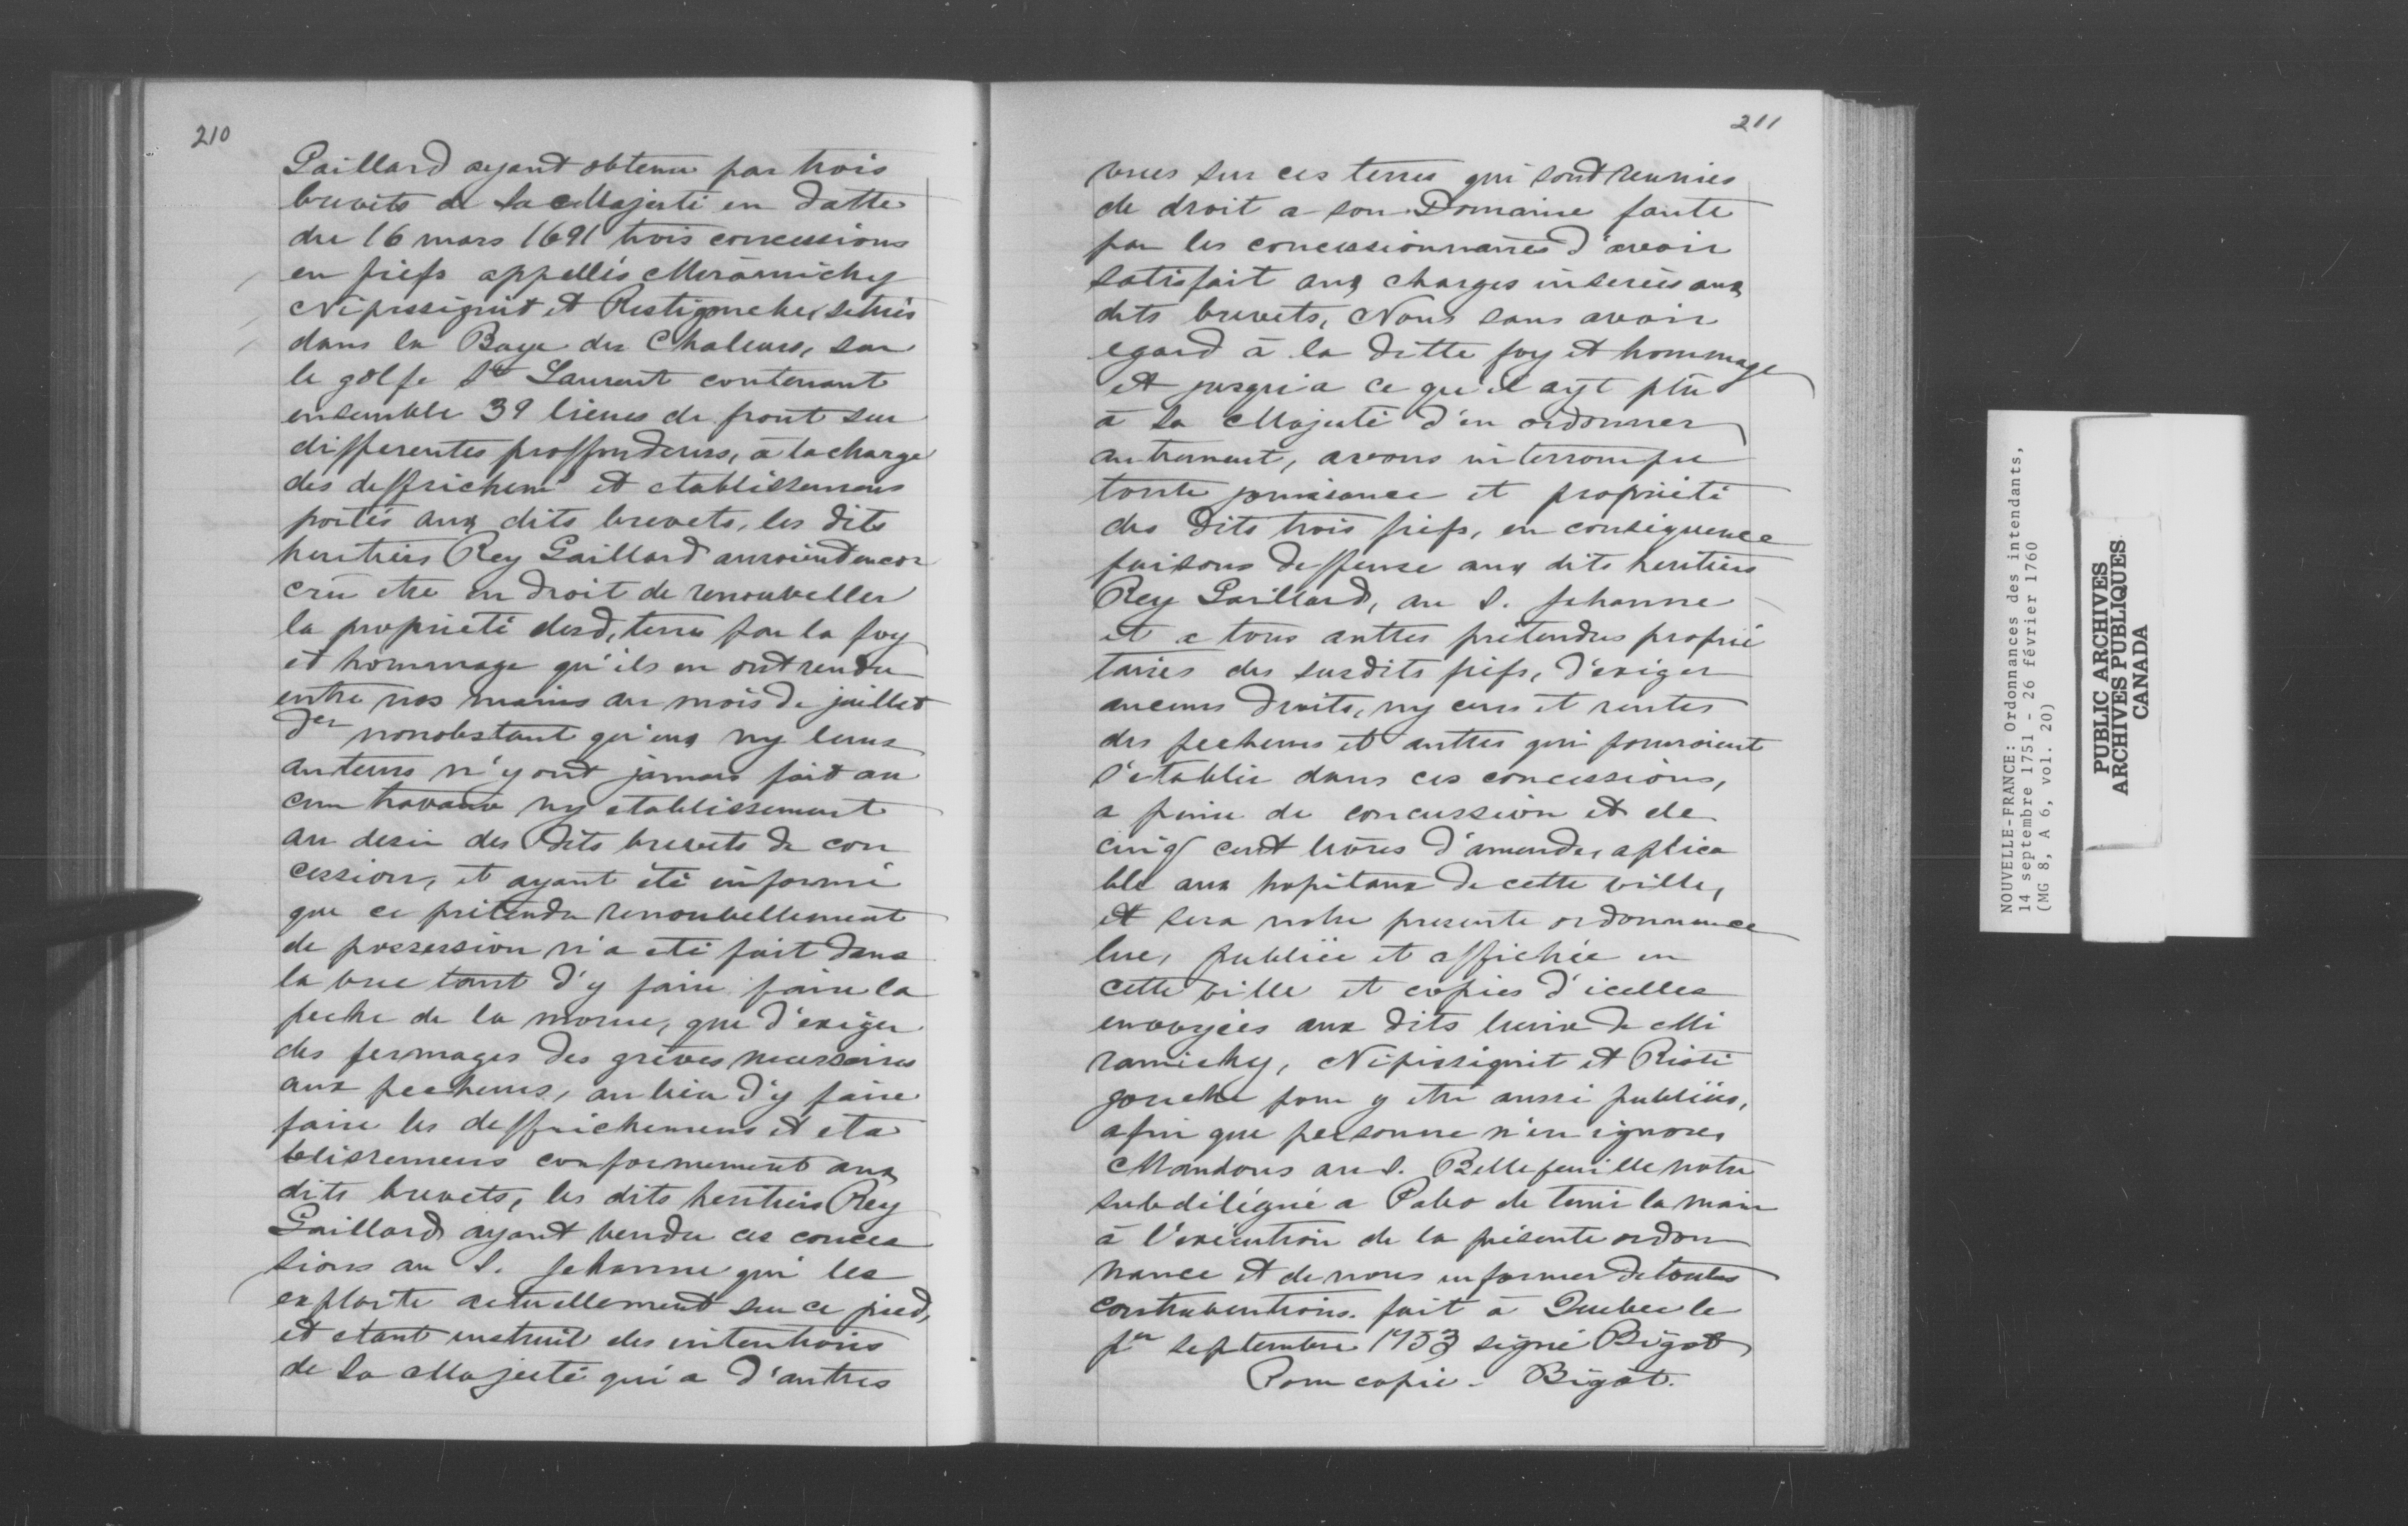 210
Gaillard ayant obtenu par trois
brevets de Sa Majesté en datte
du 16 mars 1691 trois concessions
en fiefs appellés Miramichy
Nipissiguit et Restigouche, situés
dans la Baye des Chaleurs, sur
le golfe St Laurent contenant
ensemble 39 lieues de front sur
differentes proffondeurs, à la charge
des deffrichem et etablissemens
portés aux dits brevets, les dits
heritiers Rey Gaillard auroient encor
crû etre en droit de renouveller
la propriété desd, terres par la foy
et hommage qu'ils en ont rendu
entre nos mains au mois de juillet
der nonobstant qu'eux ny leurs
auteurs n'y ont jamais fait au
cun travaux ny etablissement
au desir des dits brevets de con
cession, et ayant été informé
que ce prétendu renouvellement
de possession n'a eté fait dans
la vue tant d'y faire faire la
peche de la morue, que d'exiger
des fermages des grèves necessaires
aux pecheurs, au lieu d'y faire
faire les deffrichemens et eta
blissemens conformement aux
dits brevets, les dits heritiers Rey
Gaillard ayant vendu ces conces
sions au S. Jehanne qui les
exploite actuellement sur ce pied,
et etant instruit des intentions
de Sa Majesté qui a d'autres
211
vues sur ces terres qui sont reunies
de droit a son Domaine faute
par les concessionnaires d'avoir
satisfait aux charges inserées aux
dits brevets, Nous sans avoir
egard à la ditte foy et hommage
et jusqu'a ce qu'il ayt plû
à Sa Majesté d'en ordonner
autrement, avons interrompu
toute jouissance et propriété
des dits trois fiefs, en consequence
faisons deffense aux dits heritiers
Rey Gaillard, au S. Jehanne
et a tous auttres prétendus proprié
taires des susdits fiefs, d'exiger
aucuns droits, ny cens et rentes
des pecheurs et auttres qui pourroient
s'etablir dans ces concessions,
a peine de concussion et de
cinq cent livres d'amende, aplica
ble aux hopitaux de cette ville,
et sera notre presente ordonnance
lue, publiée et affichée en
cette ville et copies d'icelles
envoyées aux dits lieux de Mi
ramichy, Nipissiguit et Risti
gouche pour y etre aussi publiées,
afin que personne n'en ignore,
Mandons au S. Bellefeuille notre
subdélégué a Pabo de tenir la main
à l'execution de la présente ordon
nance et de nous informer de toutes
contraventions. fait à Quebec le
per septembre 1753 signé Bigot
Pour copie. Bigot.
NOUVELLE-FRANCE: Ordonnances des intendants,
14 septembre 1751 - 26 février 1760
(MG 8, A 6, vol. 20)
PUBLIC ARCHIVES
ARCHIVES PUBLIQUES
CANADA